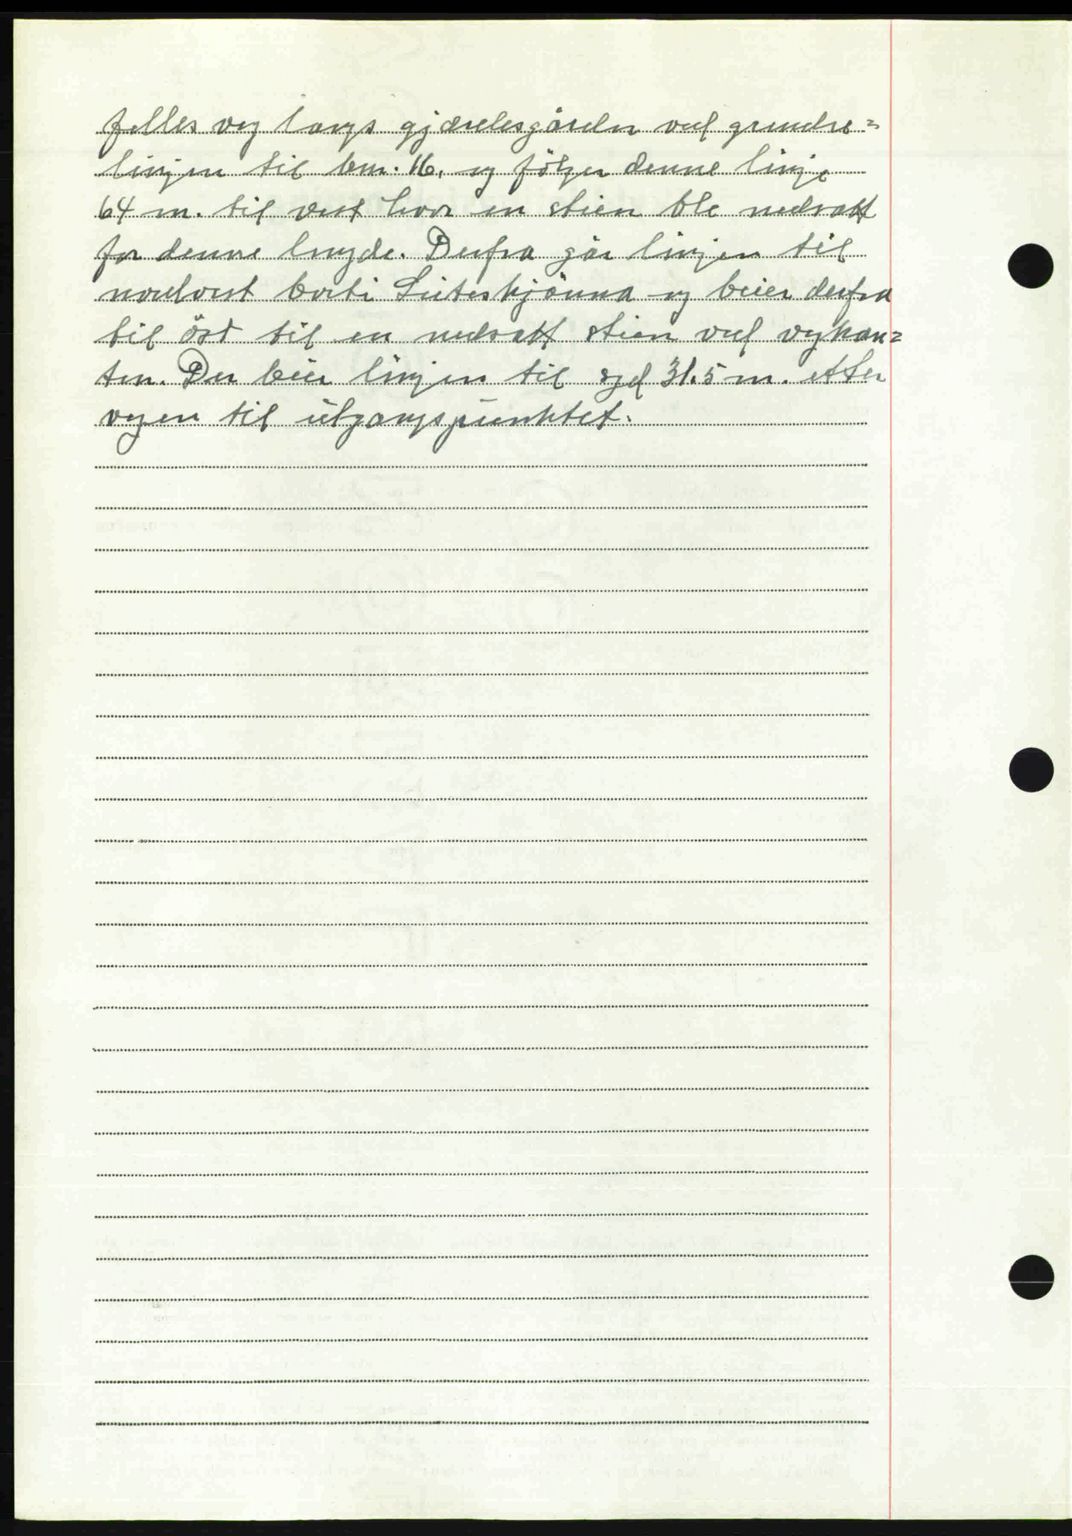 felles veg langs gjærdesgården ved grendse=
linjen til bnr. 16, og følger denne linje
64 m. til vest hvor en stien ble nedsatt
for denne lengde. Derfra går linjen til
nordvest borti Leiteskjönna og beier derfra
til öst til en nedsatt stien ved vegkan=
ten. Der beier linjen til syd 31.5 m. etter
vegen til utgangspunktet.